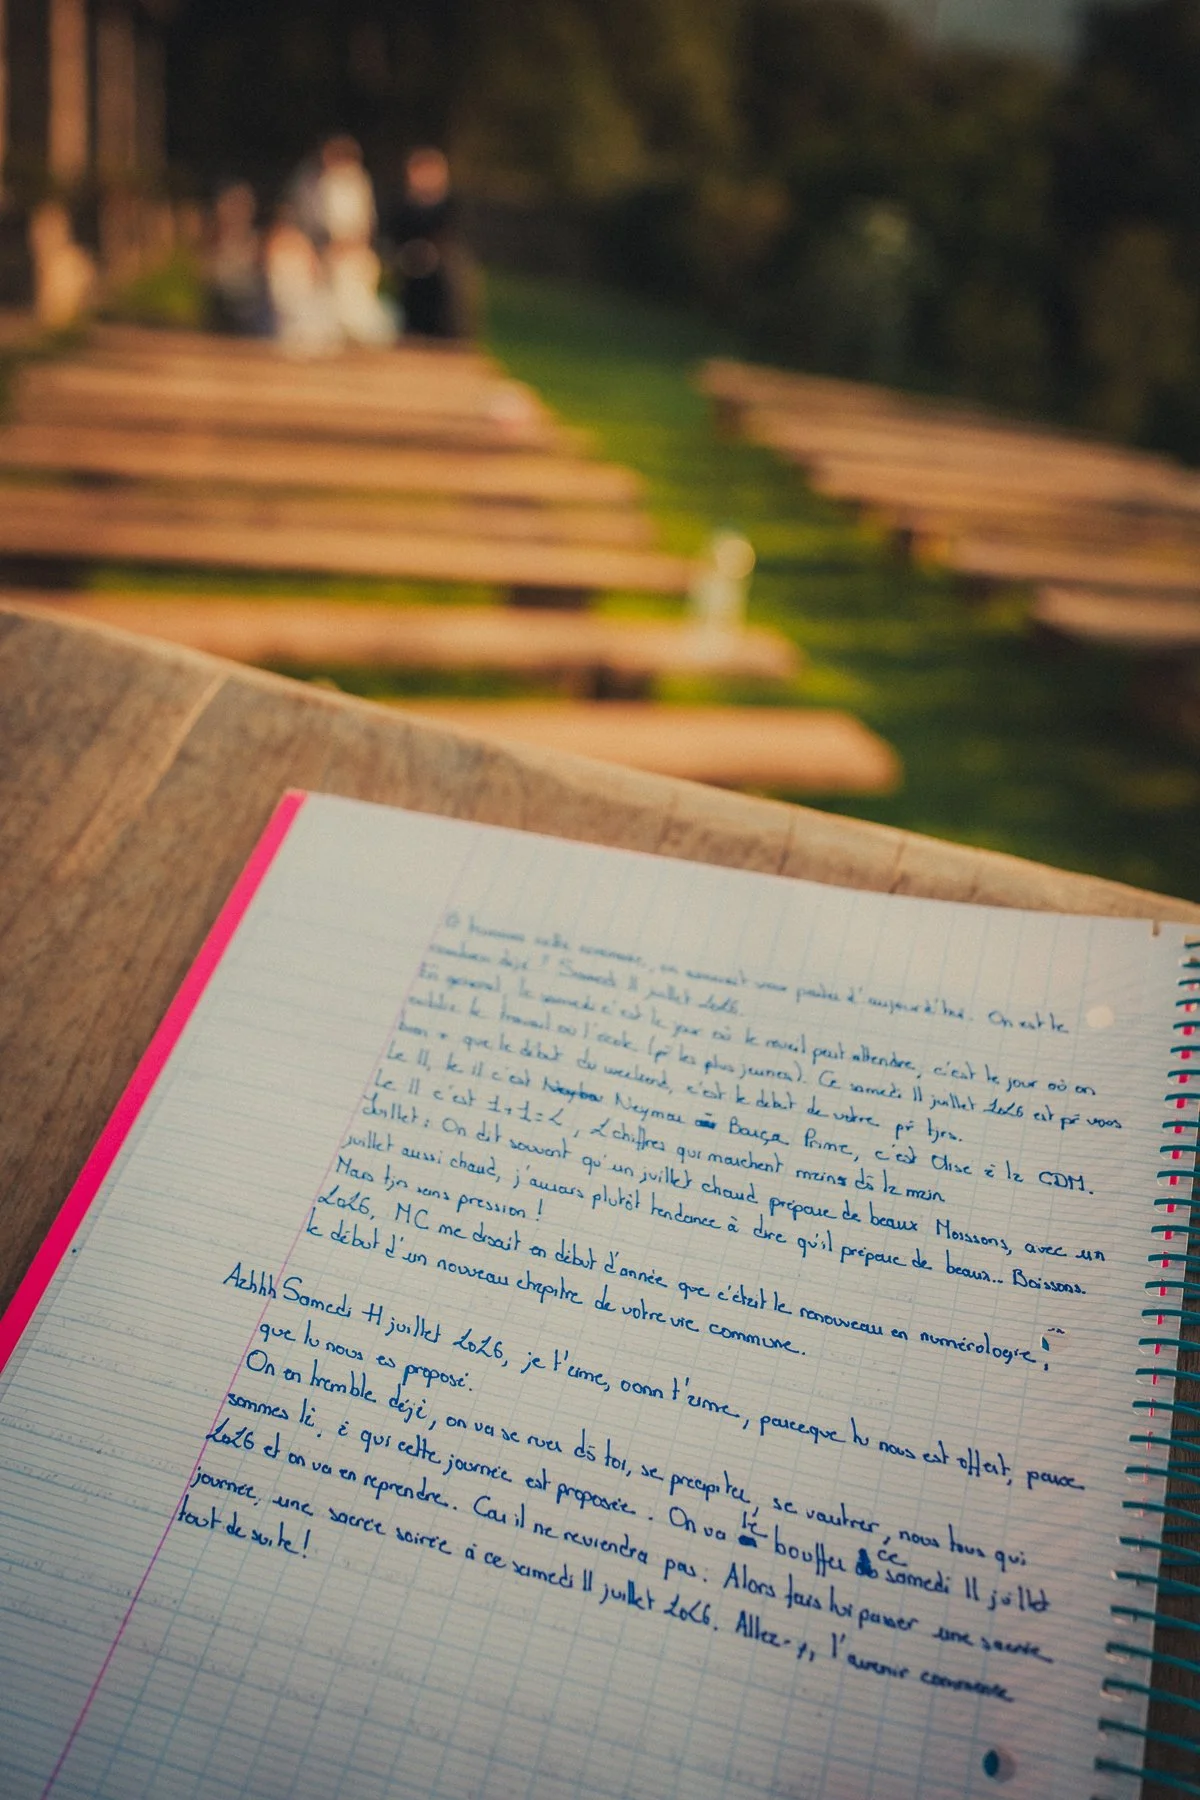 cette cérémonie, on aimerait vous parler d'aujourd'hui. On est le
combien déjà ? Samedi 11 juillet 2026.
En général, le samedi c'est le jour où le réveil peut attendre, c'est le jour où on
oublie le travail ou l'école (pr les plus jeunes). Ce samedi 11 juillet 2026 est pr vous
bien + que le début du weekend, c'est le début de votre pr tjrs.
Le 11, le 11 c'est Neymar Barça Prime, c'est Olise à la CDM.
Le 11 c'est 1+1=2, 2 chiffres qui marchent mains ds la main
Juillet : On dit souvent qu'un juillet chaud prépare de beaux Moissons, avec un
juillet aussi chaud, j'aurais plutôt tendance à dire qu'il prépare de beaux... Boissons.
Mais tjrs sans pression !
2026, MC me disait en début d'année que c'était le renouveau en numérologie,
le début d'un nouveau chapitre de votre vie commune.
Aahhh Samedi 11 juillet 2026, je t'aime, oonn t'aime, parceque tu nous est offert, parce
que tu nous es proposé.
On en tremble déjà, on va se ruer ds toi, se precipiter, se vautrer, nous tous qui
sommes là, à qui cette journée est proposée. On va le bouffer ce samedi 11 juillet
2026 et on va en reprendre. Car il ne reviendra pas. Alors fais lui passer une sacrée
journée, une sacrée soirée à ce samedi 11 juillet 2026. Allez-y, l'avenir commence
tout de suite !